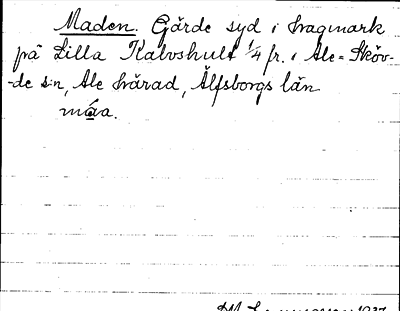 Maden. Gärde syd i hagmark
på Lilla Kalvshult 1/4 fr. i Ale-Sköv-
-de sn, Ale härad, Älfsborgs län
måa.
1937